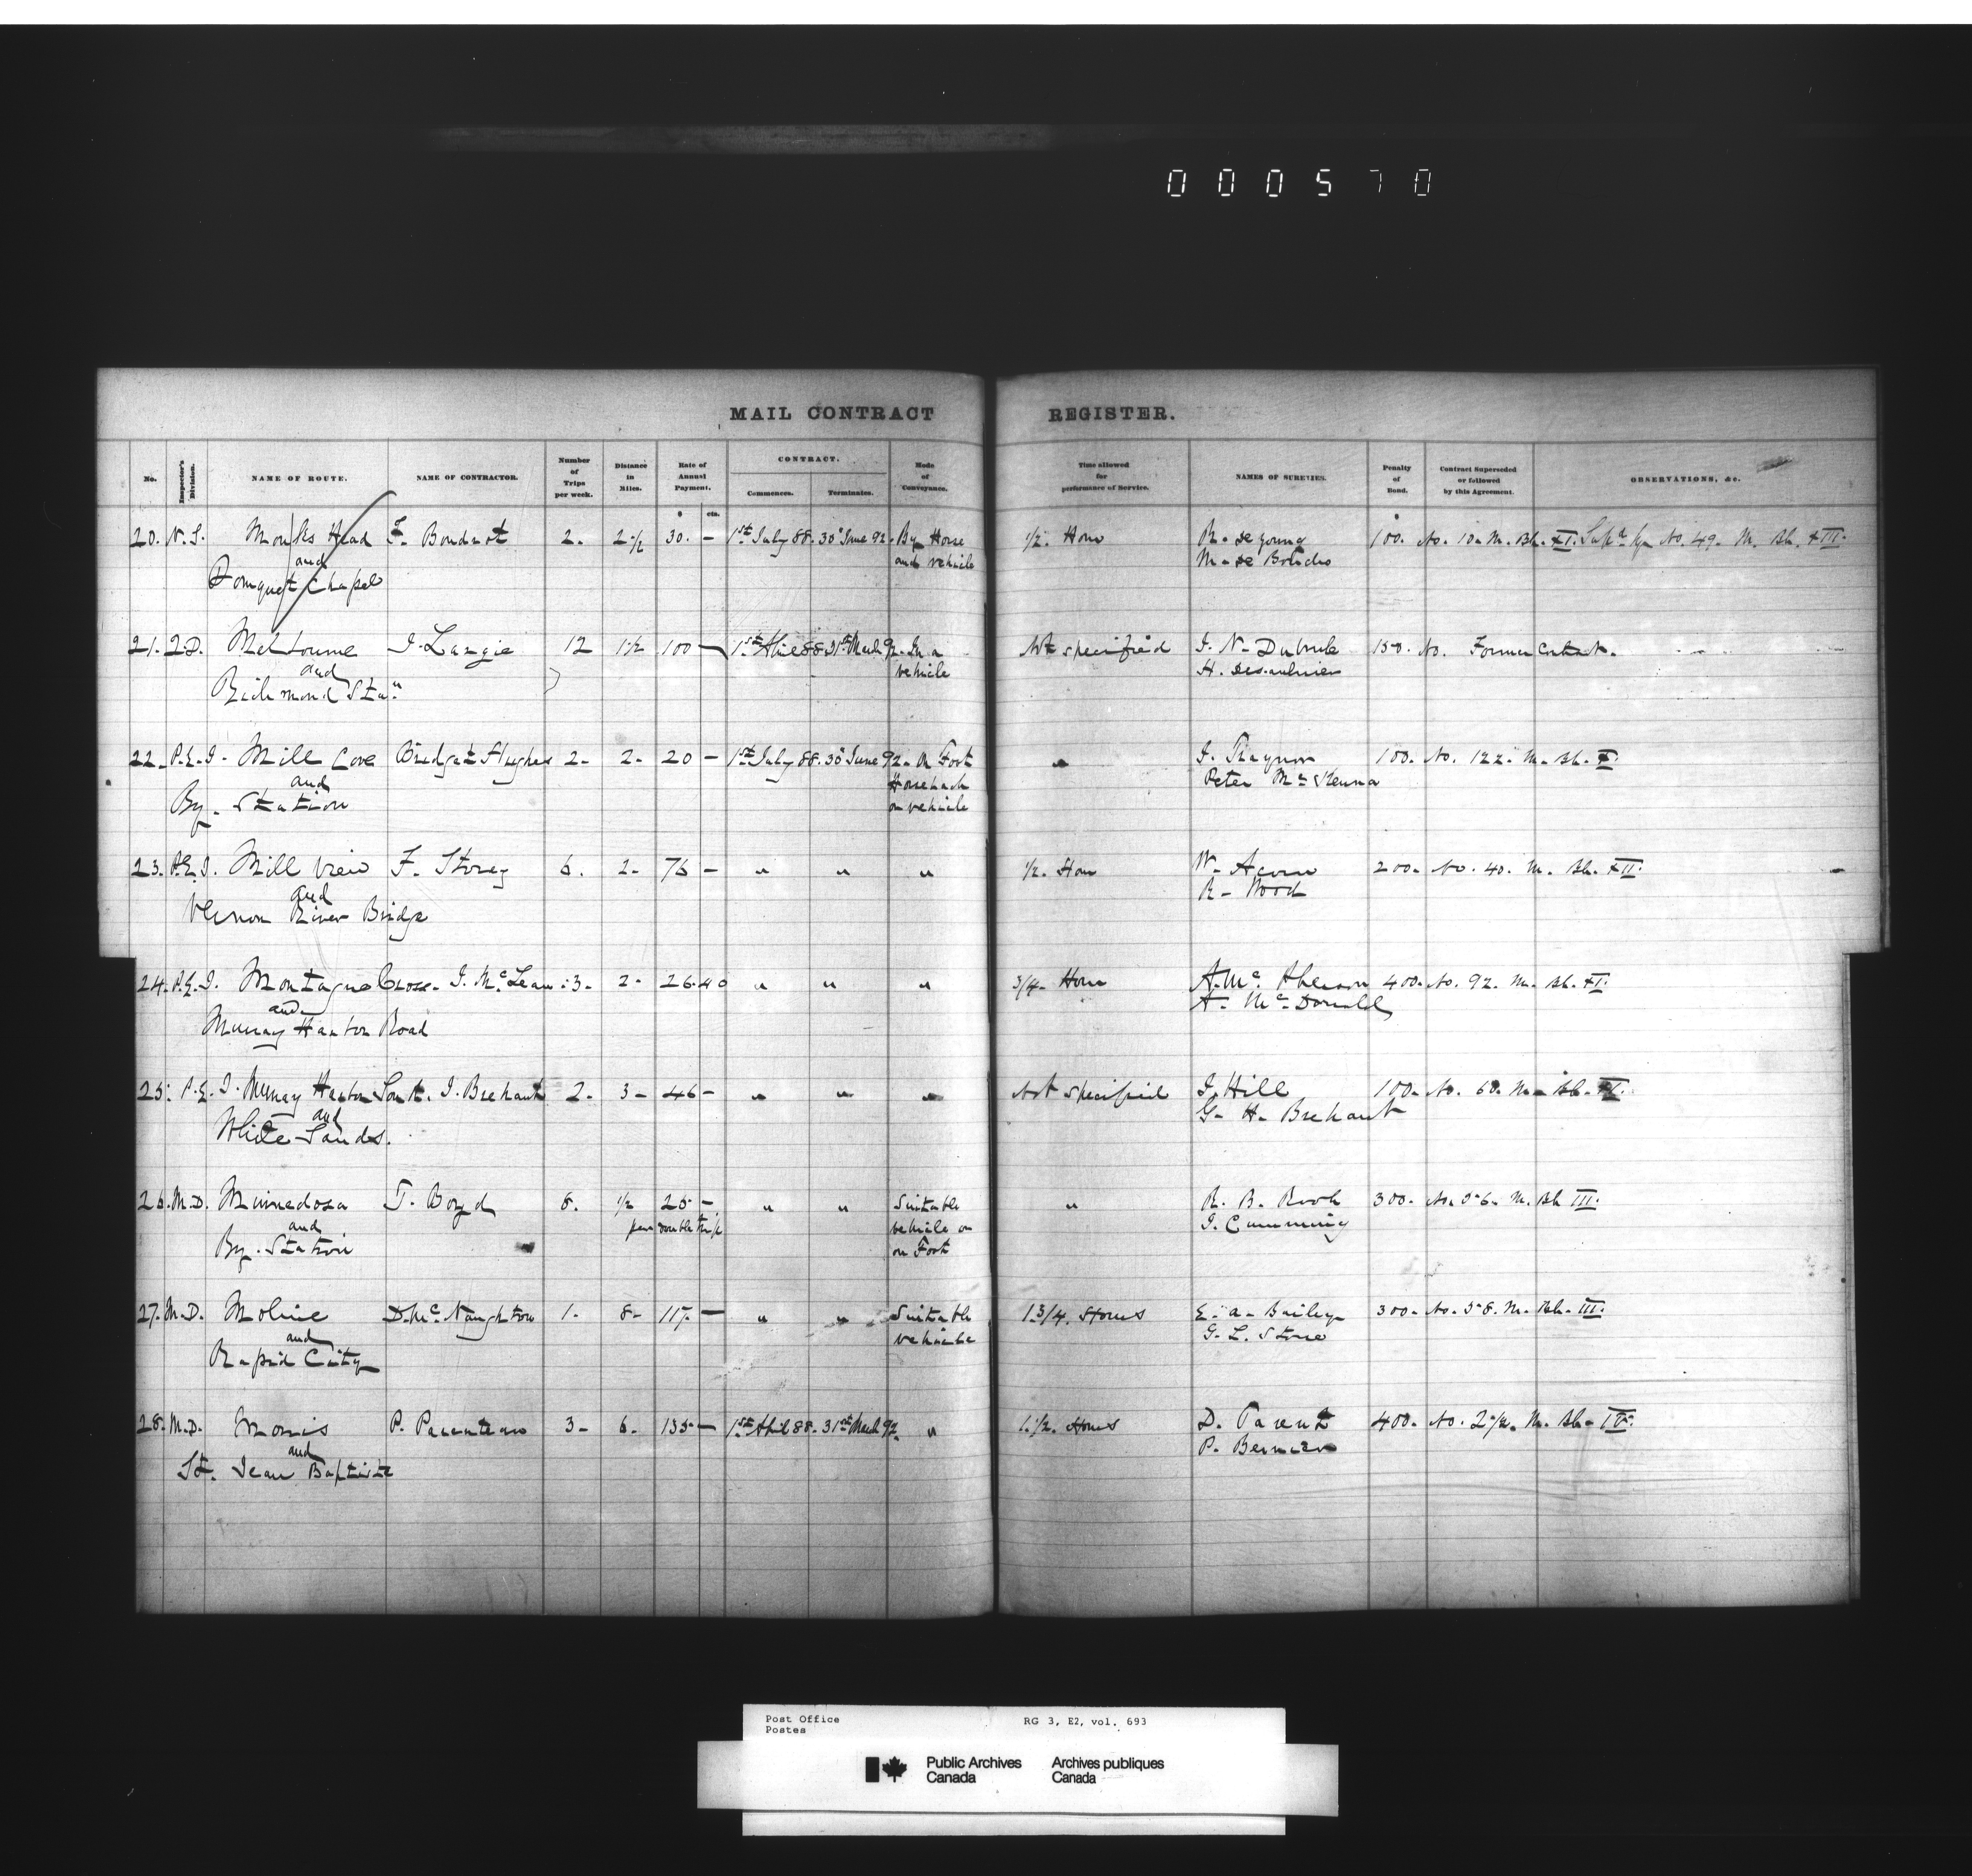 000570
MAIL CONTRACT REGISTER.
No. Inspector's Division. NAME OF ROUTE. NAME OF CONTRACTOR. Number of Trips per week. Distance in Miles. Rate of Annual Payment. CONTRACT. Commences. Terminates. Mode of Conveyance. Time allowed for performance of Service. NAMES OF SURETIES. Penalty of Bond. Contract Superseded or followed by this Agreement. OBSERVATIONS, &c.
$ cts. $
20. N.S. Monks Head F. Boudrot 2. 2 1/2 30. — 1st July 88. 30 June 92. By Horse 1/2 Hour R. de young 100. No. 10. M. Bk. XI. No. 49. M. Bk. XIII.
and and vehicle M. de
Pomquet Chapel
21. Q.D. Melbourne J. Langie 12 1 1/2 100 — 1st April 88 31st March 92. In a Not specified J. N. Dubrule 150. No. Former Contract.
and vehicle H. Desaulnier
Richmond Stan
22. P.E.I. Mill Cove Bridget Hughes 2. 2. 20 — 1st July 88. 30 June 92. On Foot " J. Traynor 100. No. 122. M. Bk. X.
and Horseback Peter McKenna
By. Station or vehicle
23. P.E.I. Mill View F. Storey 6. 2. 76 — " " " 1/2. Hour W. Acorn 200. No. 40. M. Bk. XII.
and R. Wood
Vernon River Bridge
24. P.E.I. Montague Cross. J. McLean 3. 2. 26.40 " " " 3/4. Hour A. Mc 400. No. 92. M. Bk. XI.
and A. McDonald
Murray Harbor Road
25. P.E.I. Murray Harbor South. J. Brehaut 2. 3 — 46 — " " " Not specified J. Hill 100. No. 60. M. Bk. XI.
and G. H. Brehaut
White Sands.
26. M.D. Minnedosa J. Boyd 6. 1/2 25 — " " Suitable " R. B. Rook 300. No. 56. M. Bk III.
and per double trip vehicle or J. Cumming
By. Station on Foot
27. M.D. Moline D. McNaughton 1. 8. 117. — " " Suitable 1 3/4. Hours E. A. Bailey 300. No. 58. M. Bk. III.
and vehicle G. L. Stone
Rapid City
28. M.D. Morris P. Parenteau 3. 6. 135 — 1st April 88. 31st March 92. " 1 1/2. Hours D. Parent 400. No. 2 1/2. M. Bk. IV.
and P. Bernier
St. Jean Baptiste
Post Office RG 3, E2, vol. 693
Postes
Public Archives Archives publiques
Canada Canada